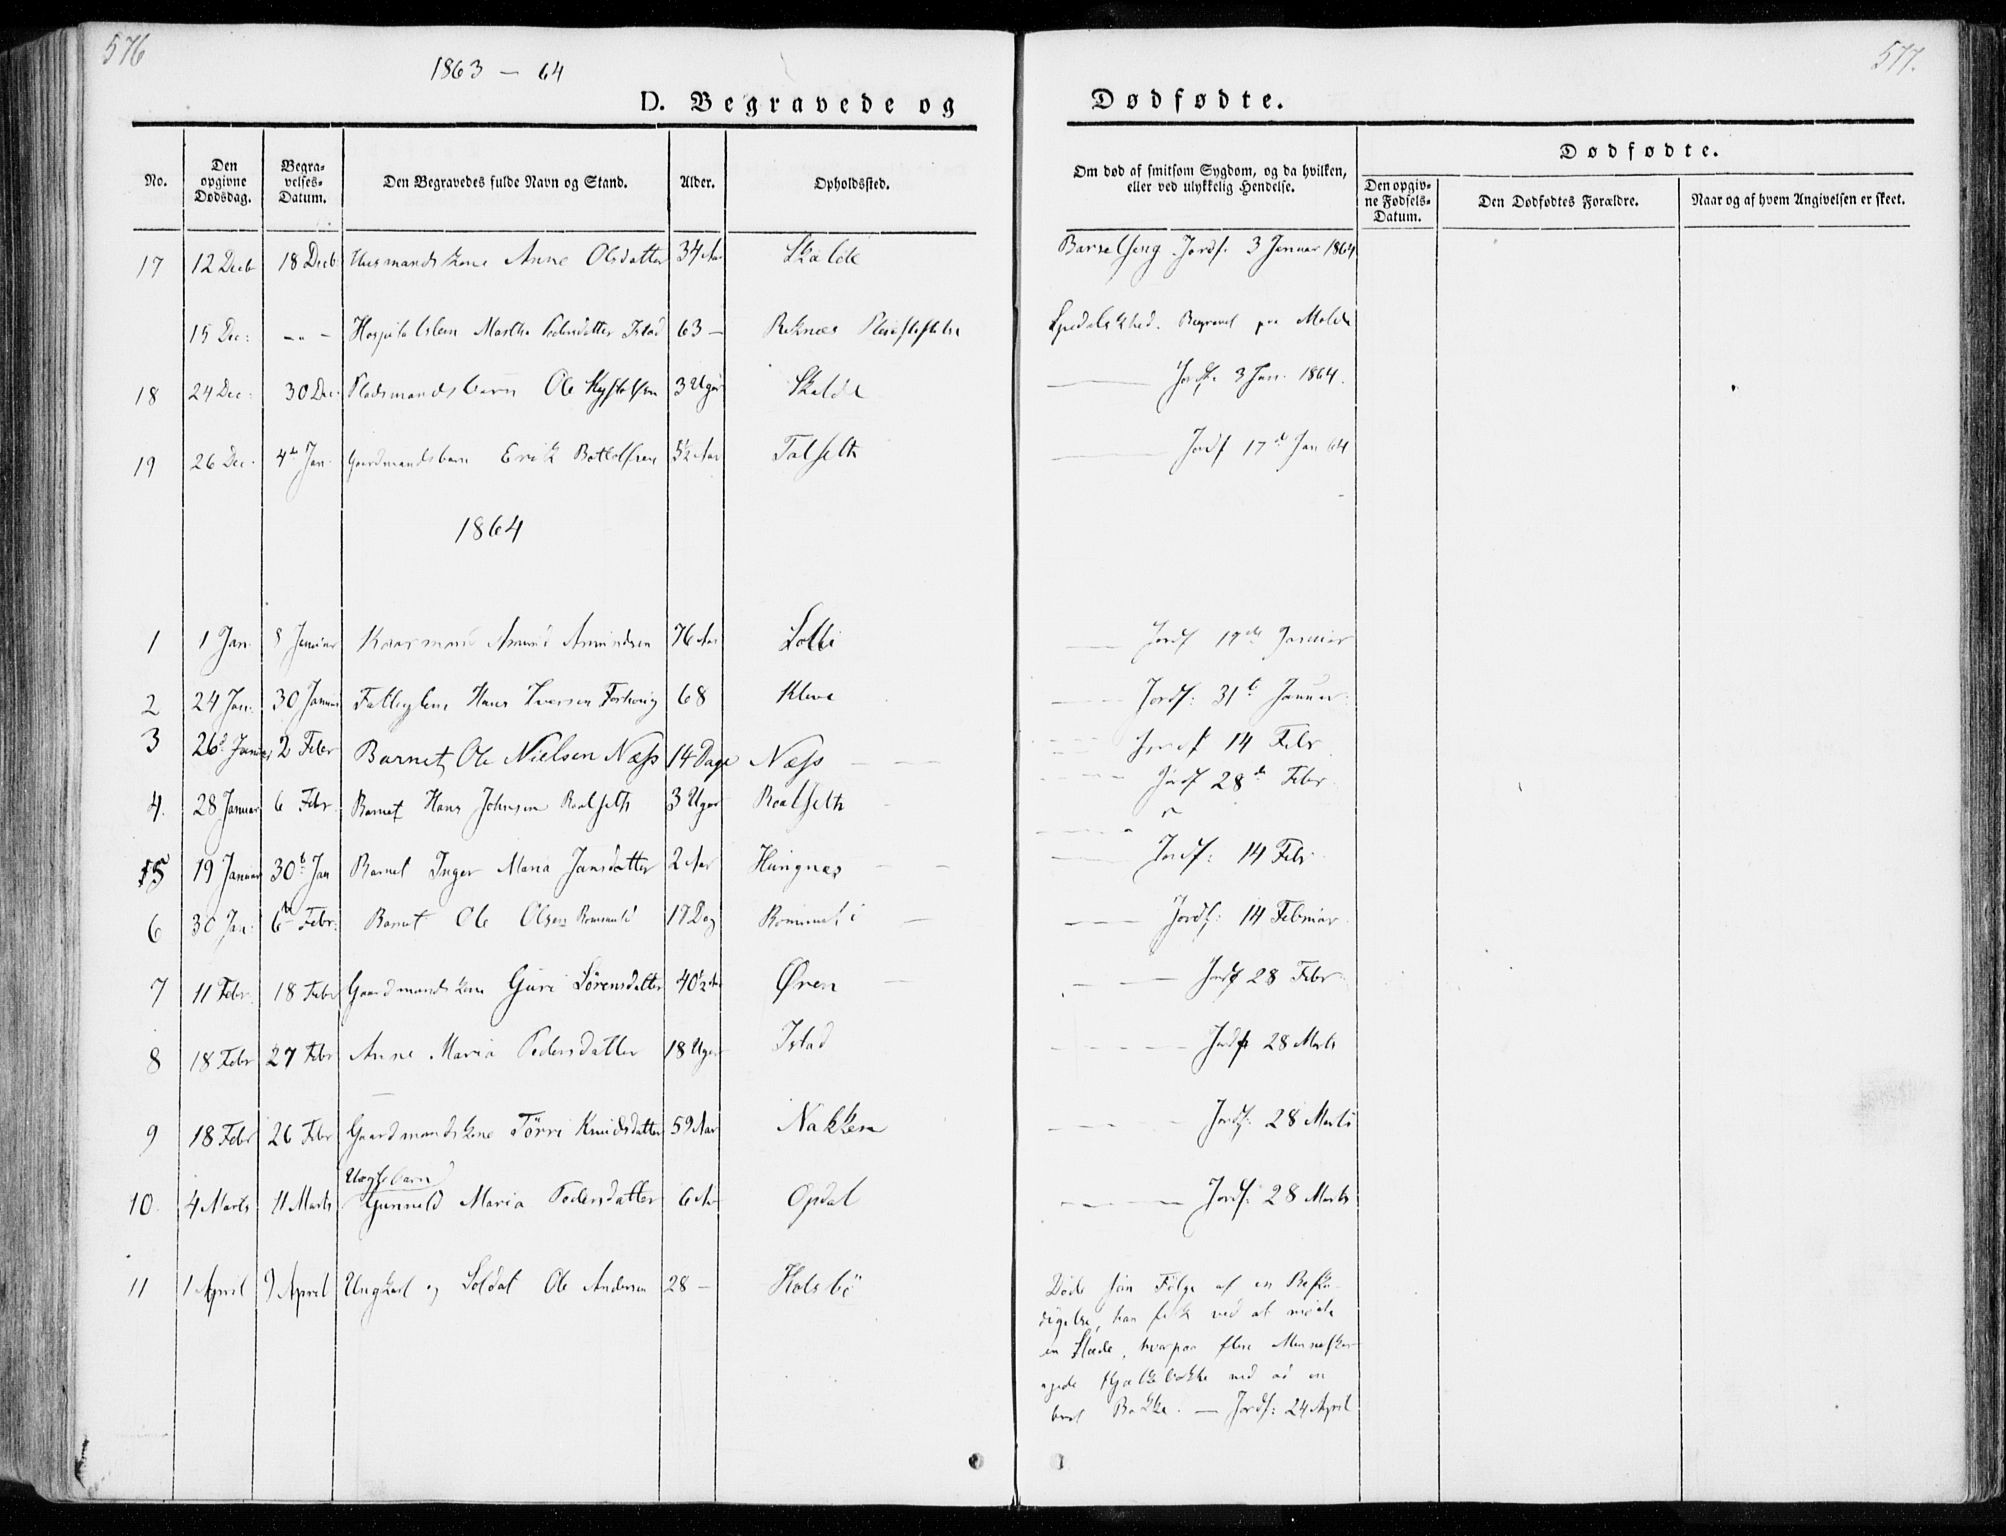 576
577.
1863 — 64
D. Begravede og Dødfødte.
No.
Den opgivne Dødsdag.
Begravelses-Datum.
Den Begravedes fulde Navn og Stand.
Alder.
Opholdssted.
Om død af smitsom Sygdom, og da hvilken, eller ved ulykkelig Hendelse.
Dødfødte.
Den opgivne Fødsels-Datum.
Den Dødfødtes Forældre.
Naar og af hvem Angivelsen er skeet.
17 12 Decb 18 Decb Husmandskone Anne Olsdatter 34 Aar Skalde Barselseng Jordf. 3 Januar 1864
15 Dec: - " - Hospitalslem Marthe Pedersdatter Istad 63 — Reknæs Pleiestiftelse Spedalskhed. Begravet paa Molde
18 24 Dec: 30 Dec: Pladsmandsbarn Ole 3 Uger Skalde — Jordf. 3 Jan. 1864.
19 26 Dec. 4de Jan. Gaardmandsbarn Erik Bottolfsen ½ Aar Talseth — Jordf 17de Jan 64
1864
1 1 Jan. 8 Januar Kaarmand Amund Amundsen 76 Aar Solli — Jordf 17de Januar
2 24 Jan. 30 Januar Fattiglem Hans Iversen 68 Kleve — Jordf: 31te Januar.
3 26d Januar 2 Febr Barnet Ole Nielsen Næss 14 Dage Næss — — Jordf 14 Febr
4. 28 Januar 6 Febr. Barnet Hans Johnsen Roalseth 3 Uger Roalseth - Jordf 28de Febr.
5 19 Januar 30te Jan Barnet Inger Maria Jansdatter 2 Aar Hungnes — — Jordf: 14 Febr
6 30 Jan: 6te Febr. Barnet Ole Olsen 17 Dag — Jordf: 14 Februar.
7 11 Febr. 18 Febr Gaardmandskone Guri Sørensdatter 40½ Aar Øren — — Jordf 28 Febr.
8 18 Febr 27 Febr Anne Maria Pedersdatter 18 Uger Istad — Jordf 28 Marts
9 18 Febr 26 Febr Gaardmandskone Tørri Knudsdatter 59 Aar Nakken — Jordf: 28 Marts
10. 4 Marts 11 Marts Uægtebarn Gunneld Maria Pedersdatter 6 Aar Opdal — Jordf: 28 Marts
11 1 April 9 April Ungkarl og Soldat Ole Andersen 28 — Holsbø Døde som Følge af en Beska-
digelse, han fik ved at møde
en Slæde, hvorpaa flere Mennesker
agede Kjælkebakke ned ad en
brat Bakke. — Jordf: 24 April